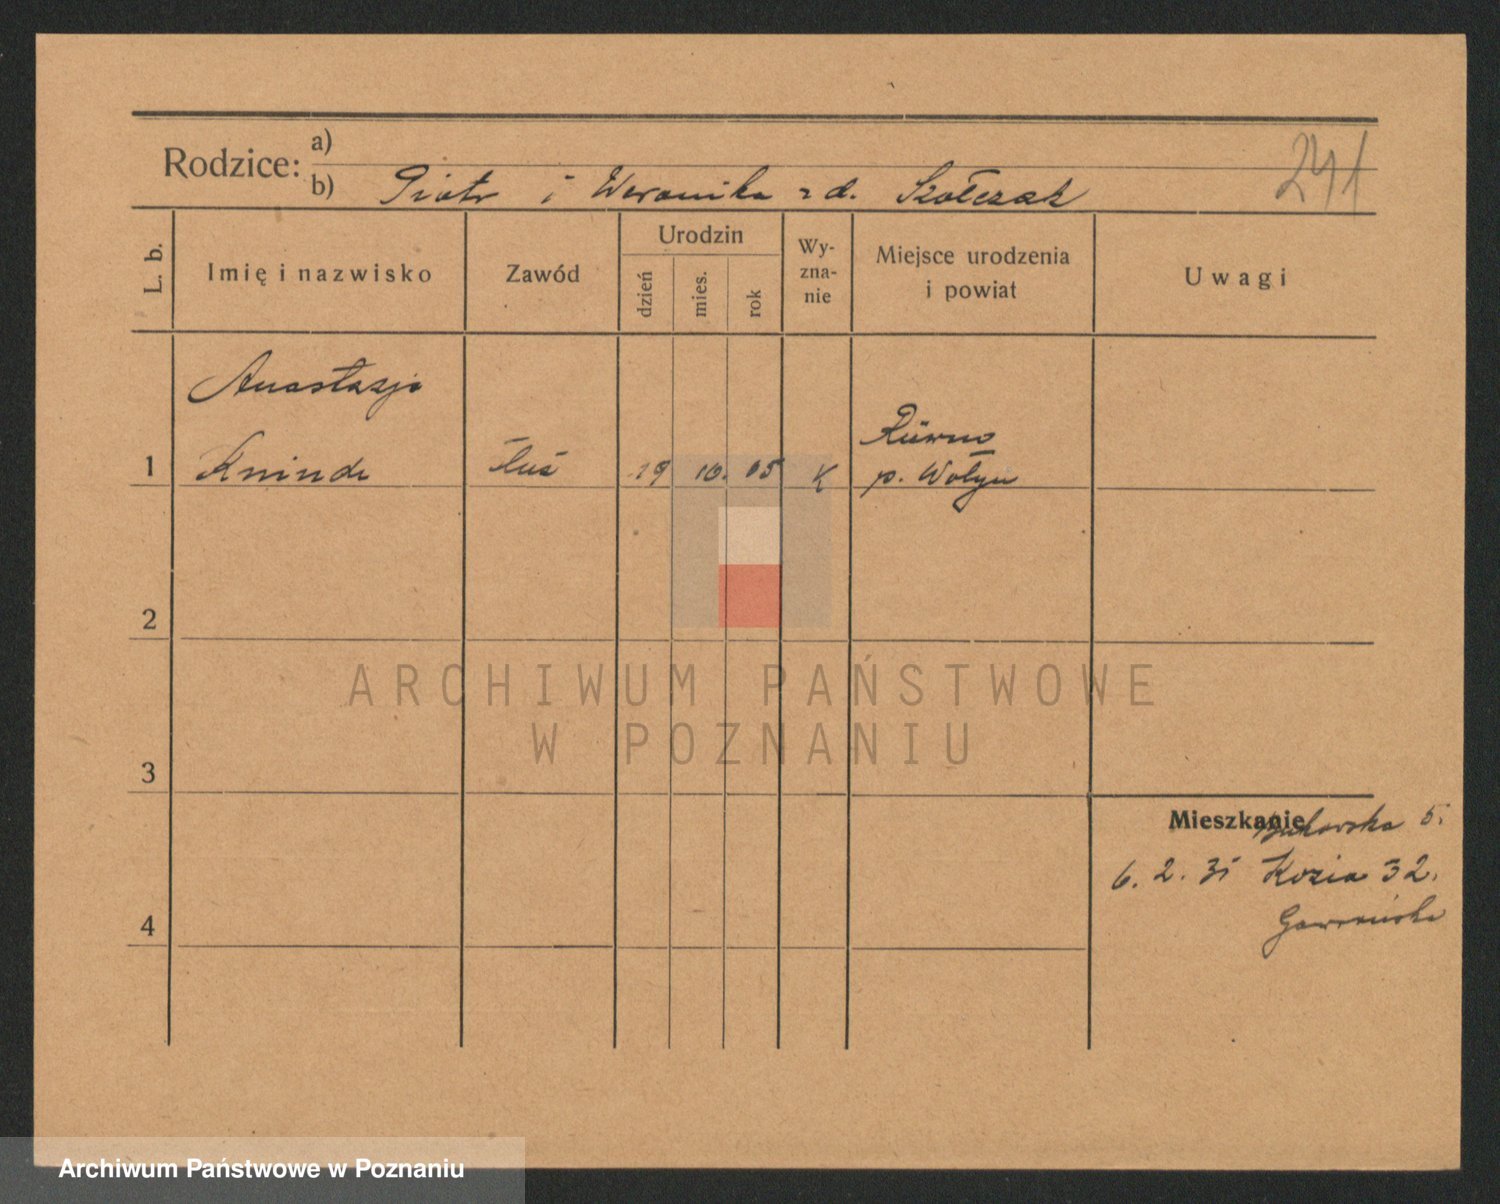 241
Rodzice:
a)
b) Piotr i Weronika z d. Szołczak
L. b.
Imię i nazwisko
Zawód
Urodzin
dzień
mies.
rok
Wy-
zna-
nie
Miejsce urodzenia
i powiat
Uwagi
Anastazja
1 19 10. 05 K Równo
p. Wołyń
2
3
4
Mieszkanie Bukowska 5.
6. 2. 31 Kozia 32.
ARCHIWUM PAŃSTWOWE
W POZNANIU
Archiwum Państwowe w Poznaniu